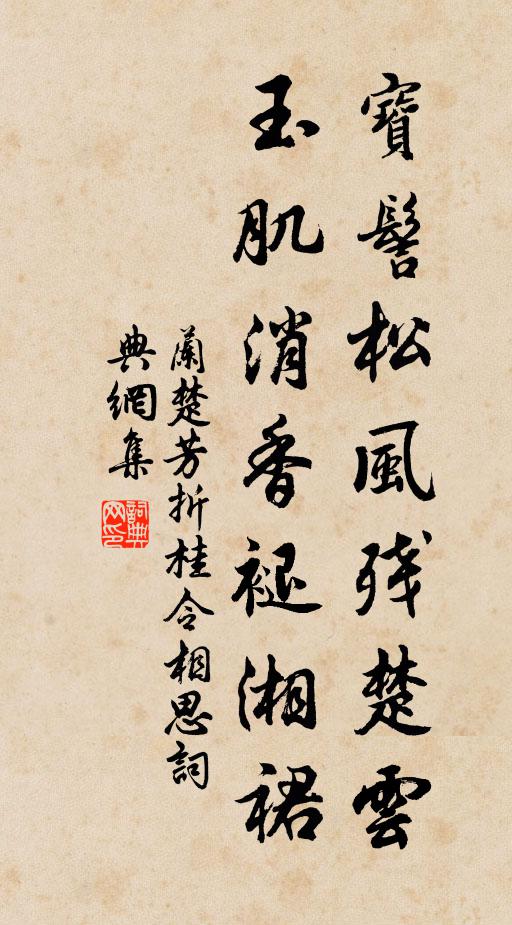 寶髻松風殘楚雲
玉肌消香褪湘裙
蘭楚芳折桂令相思詞
典網集
詞典
网印